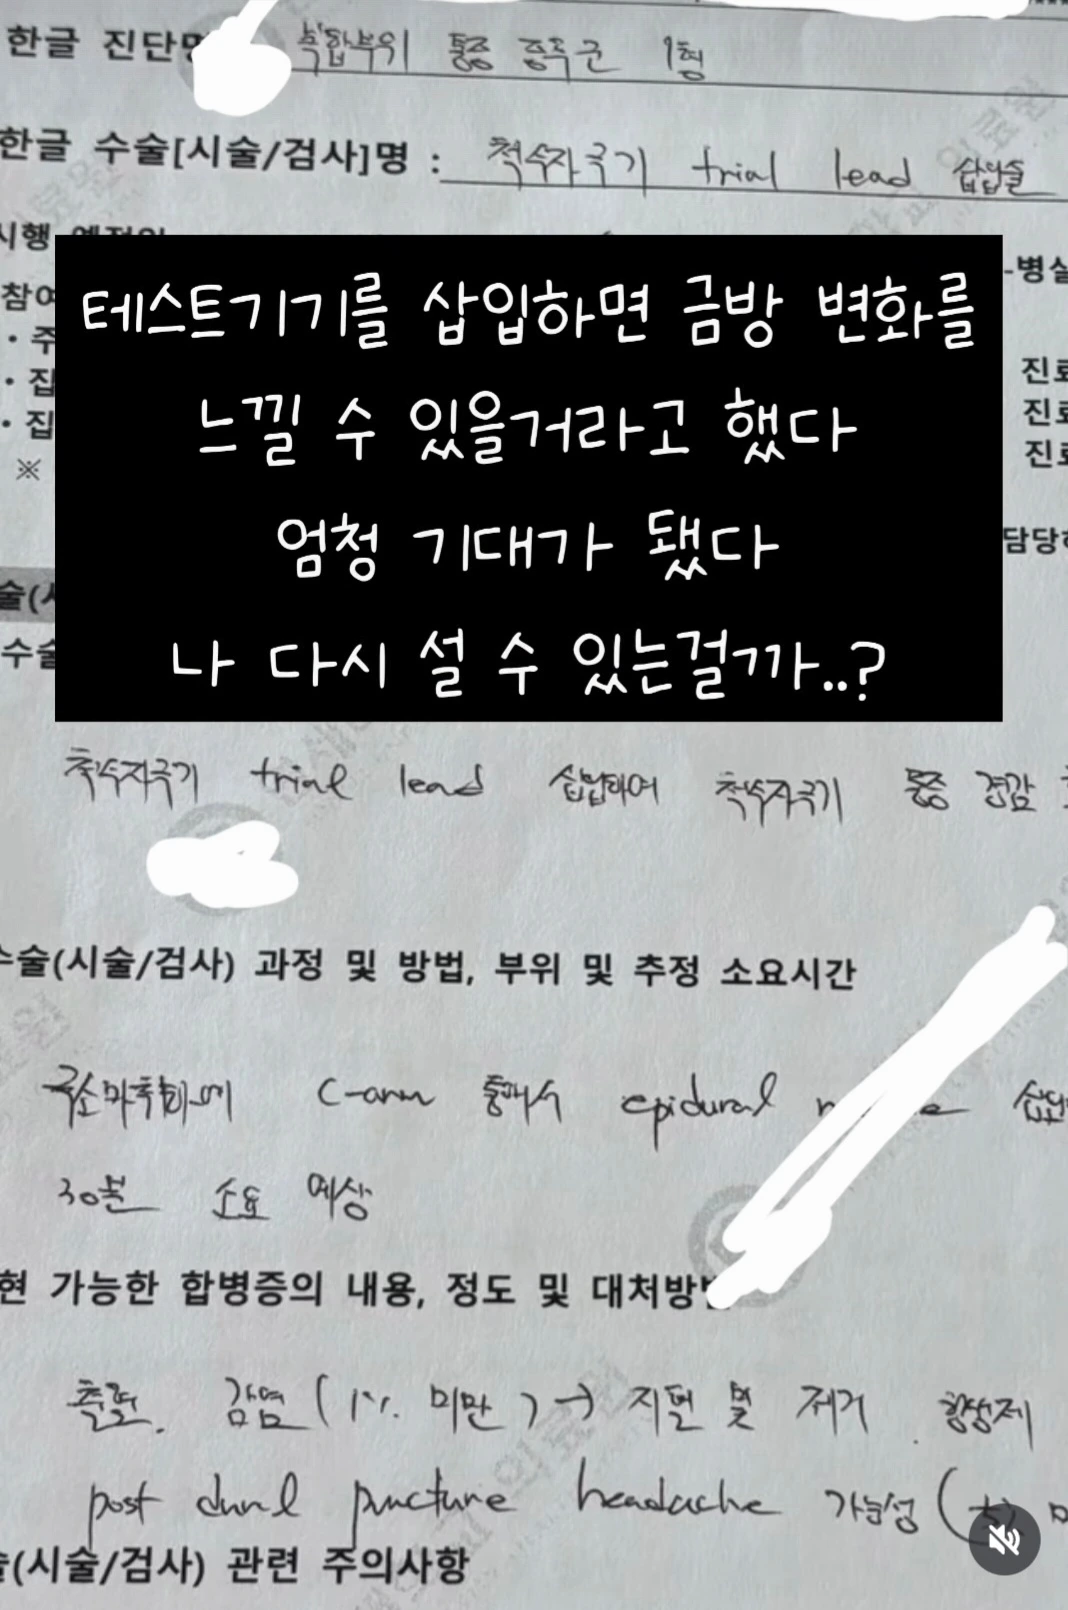 한글 진단명
복합부위 통증 증후군 1형
한글 수술[시술/검사]명 : 척수자극기 trial lead 삽입술
시행
참여
-병실
테스트기기를 삽입하면 금방 변화를
느낄 수 있을거라고 했다
엄청 기대가 됐다
나 다시 설 수 있는걸까..?
· 주
· 집
· 집
※
진료
진료
진료
담당
술(
수술
척수자극기 trial lead 삽입하여 척수자극기 통증 경감
수술(시술/검사) 과정 및 방법, 부위 및 추정 소요시간
국소마취하에 C-arm 통해서 epidural
30분 소요 예상
현 가능한 합병증의 내용, 정도 및 대처방법
출혈, 감염 (1% 미만) → 지혈 및 제거. 항생제
post dural puncture headache 가능성 (
술(시술/검사) 관련 주의사항